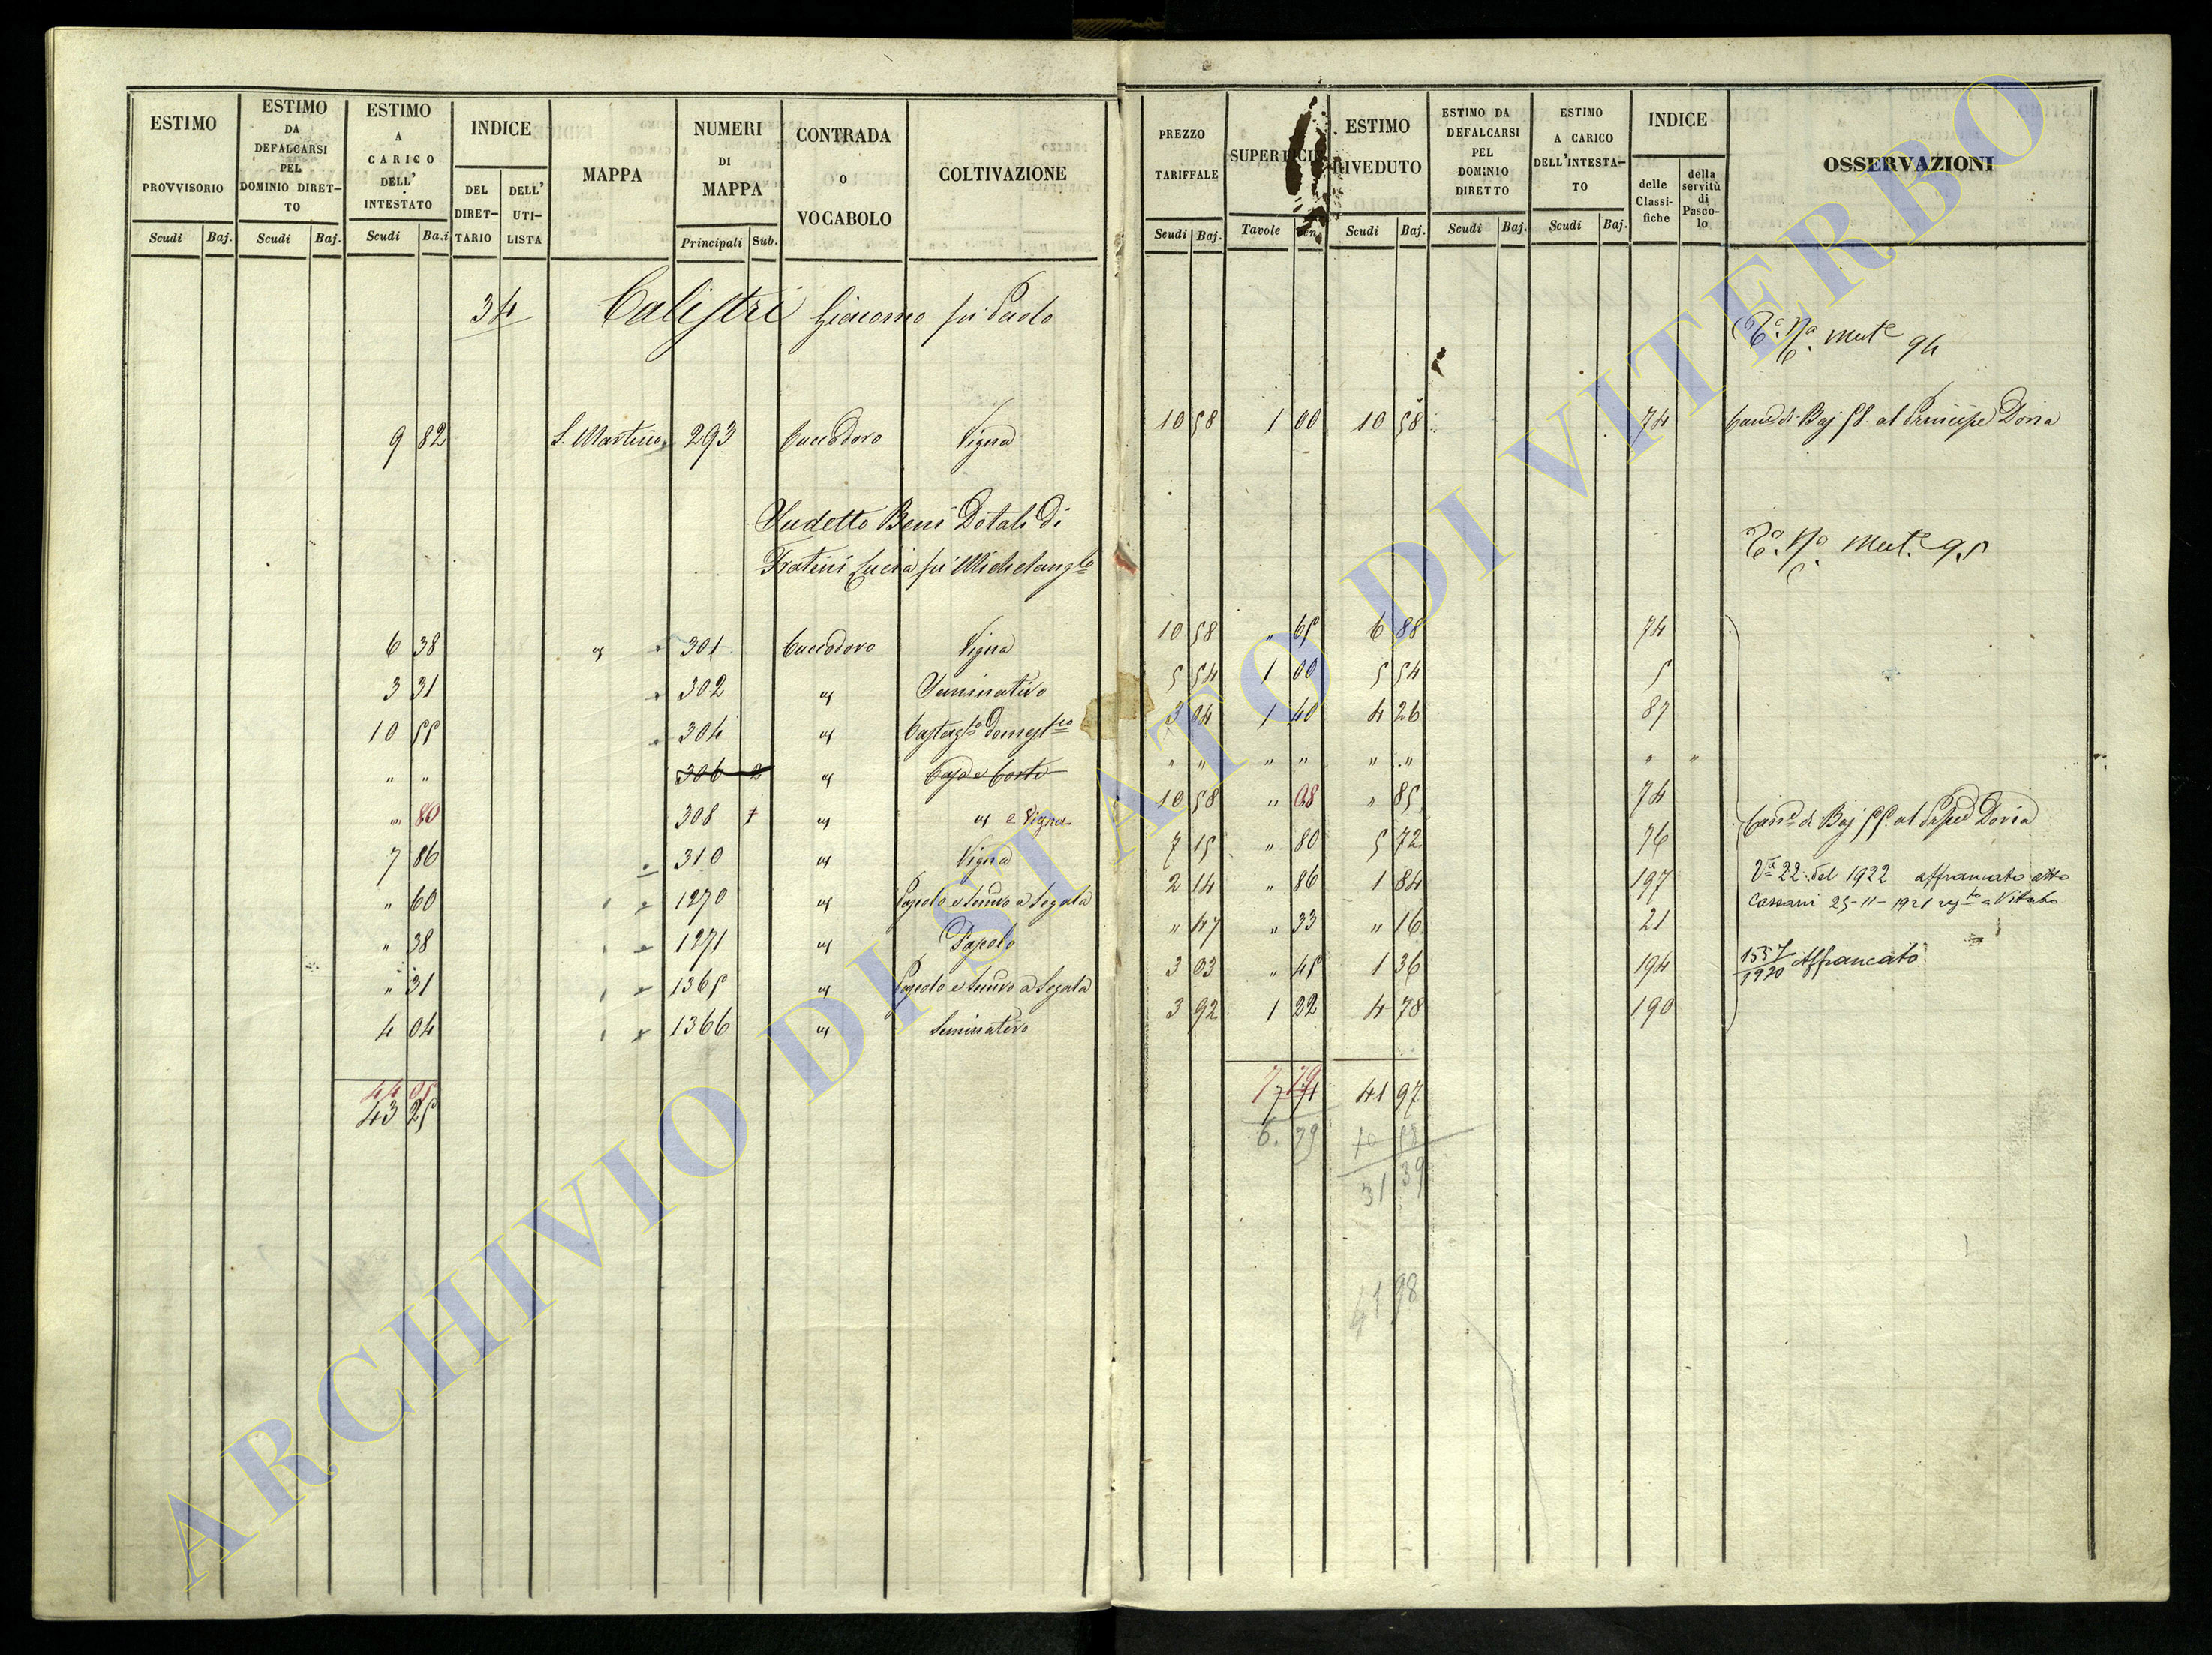 ESTIMO PROVVISORIO Scudi Baj.
ESTIMO DA DEFALCARSI PEL DOMINIO DIRET-TO Scudi Baj.
ESTIMO A CARICO DELL' INTESTATO Scudi Ba.i
INDICE DEL DIRET-TARIO DELL' UTI-LISTA
MAPPA
NUMERI DI MAPPA Principali Sub.
CONTRADA o VOCABOLO
COLTIVAZIONE
PREZZO TARIFFALE Scudi Baj.
SUPERFICIE Tavole Cen.
ESTIMO RIVEDUTO Scudi Baj.
ESTIMO DA DEFALCARSI PEL DOMINIO DIRETTO Scudi Baj.
ESTIMO A CARICO DELL'INTESTA-TO Scudi Baj.
INDICE delle Classi-fiche della servitù di Pasco-lo
OSSERVAZIONI
34 Calistri Giacomo fu Paolo
Mut.e 94
9 82 S. Martino 293 Cuccodoro Vigna 10 58 1 00 10 58 74 Can.e di Baj 58 al Principe Doria
Sudetto Beni Dotali di
Fratini Lucia fu Michelang.lo
Mut.e 95
6 38 " 301 Cuccodoro Vigna 10 58 " 65 6 88 74
3 31 302 " Seminativo 5 54 1 00 5 54 5
10 55 304 " Castag.to Domest.co 3 04 1 40 4 26 87
" " 306 2 " Casa e Corte " " " " " " " "
" 80 308 1 " " e Vigna 10 58 " 08 " 85 74
7 86 310 " Vigna 7 15 " 80 5 72 76 Can.e di Baj 55 al Doria
" 60 1270 " Pascolo e Semivo a Segala 2 14 " 86 1 84 197 22 del 1922 affrancato atto
" 38 1271 " Pascolo " 47 " 33 " 16 21 Cassani 25-11-1921 a Viterbo
" 31 1365 " Pascolo e Semivo a Segala 3 03 " 45 1 36 194 1557/1920 Affrancato
4 04 1366 " Seminativo 3 92 1 22 4 78 190
44 05
43 25
7 79
7 71 41 97
6. 79 10 58
31 39
41 98
ARCHIVIO DI STATO DI VITERBO